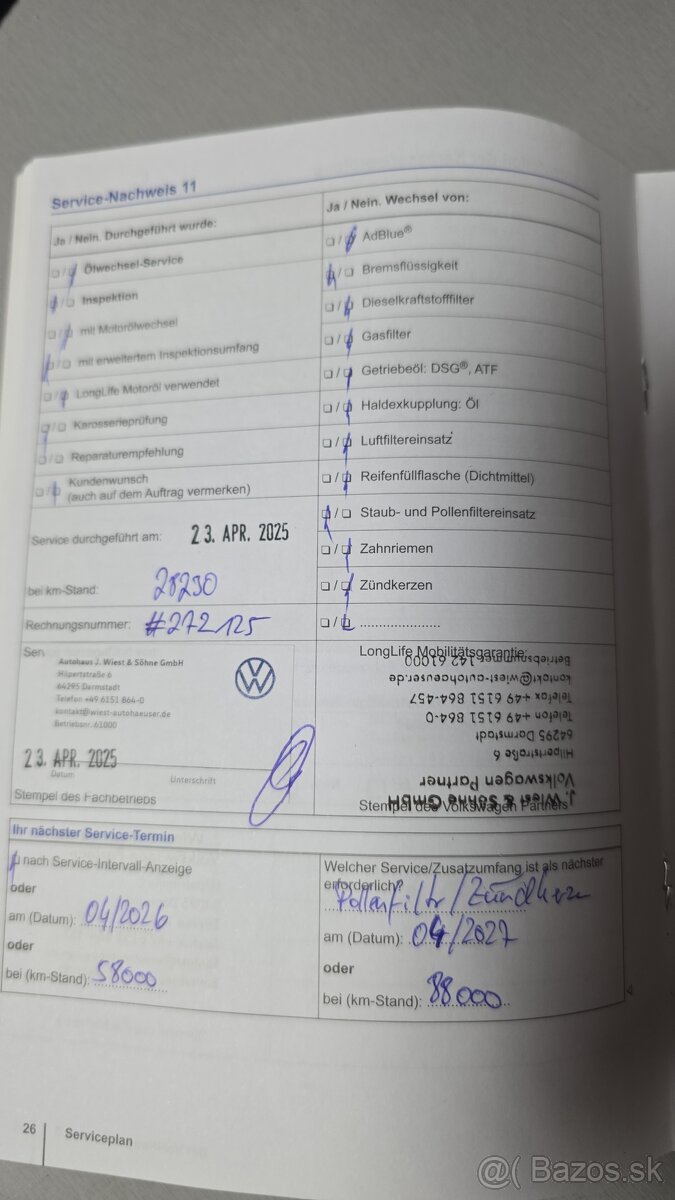 Service-Nachweis 11
Ja / Nein. Durchgeführt wurde:
Ölwechsel-Service
Inspektion
mit Motorölwechsel
mit erweitertem Inspektionsumfang
LongLife Motoröl verwendet
Karosserieprüfung
Reparaturempfehlung
Kundenwunsch
(auch auf dem Auftrag vermerken)
Service durchgeführt am: 23. APR. 2025
bei km-Stand: 28290
Rechnungsnummer: #272125
Ja / Nein. Wechsel von:
AdBlue®
Bremsflüssigkeit
Dieselkraftstofffilter
Gasfilter
Getriebeöl: DSG®, ATF
Haldexkupplung: Öl
Luftfiltereinsatz
Reifenfüllflasche (Dichtmittel)
Staub- und Pollenfiltereinsatz
Zahnriemen
Zündkerzen
Autohaus J. Wiest & Söhne GmbH
Hilpertstraße 6
64295 Darmstadt
Telefon +49 6151 864-0
kontakt@wiest-autohaeuser.de
Betriebsnr. 61000
23. APR. 2025
Datum
Unterschrift
Stempel des Fachbetriebs
LongLife Mobilitätsgarantie:
J. Wiest & Söhne GmbH
Volkswagen Partner
Hilpertstraße 6
64295 Darmstadt
Telefon +49 6151 864-0
Telefax +49 6151 864-457
kontakt@wiest-autohaeuser.de
Betriebsnummer 142 61000
Stempel des Volkswagen Partners
Ihr nächster Service-Termin
nach Service-Intervall-Anzeige
oder
am (Datum): 04/2026
oder
bei (km-Stand): 58000
Welcher Service/Zusatzumfang ist als nächster
erforderlich?
am (Datum): 04/2027
oder
bei (km-Stand): 88000
26
Serviceplan
@( Bazos.sk